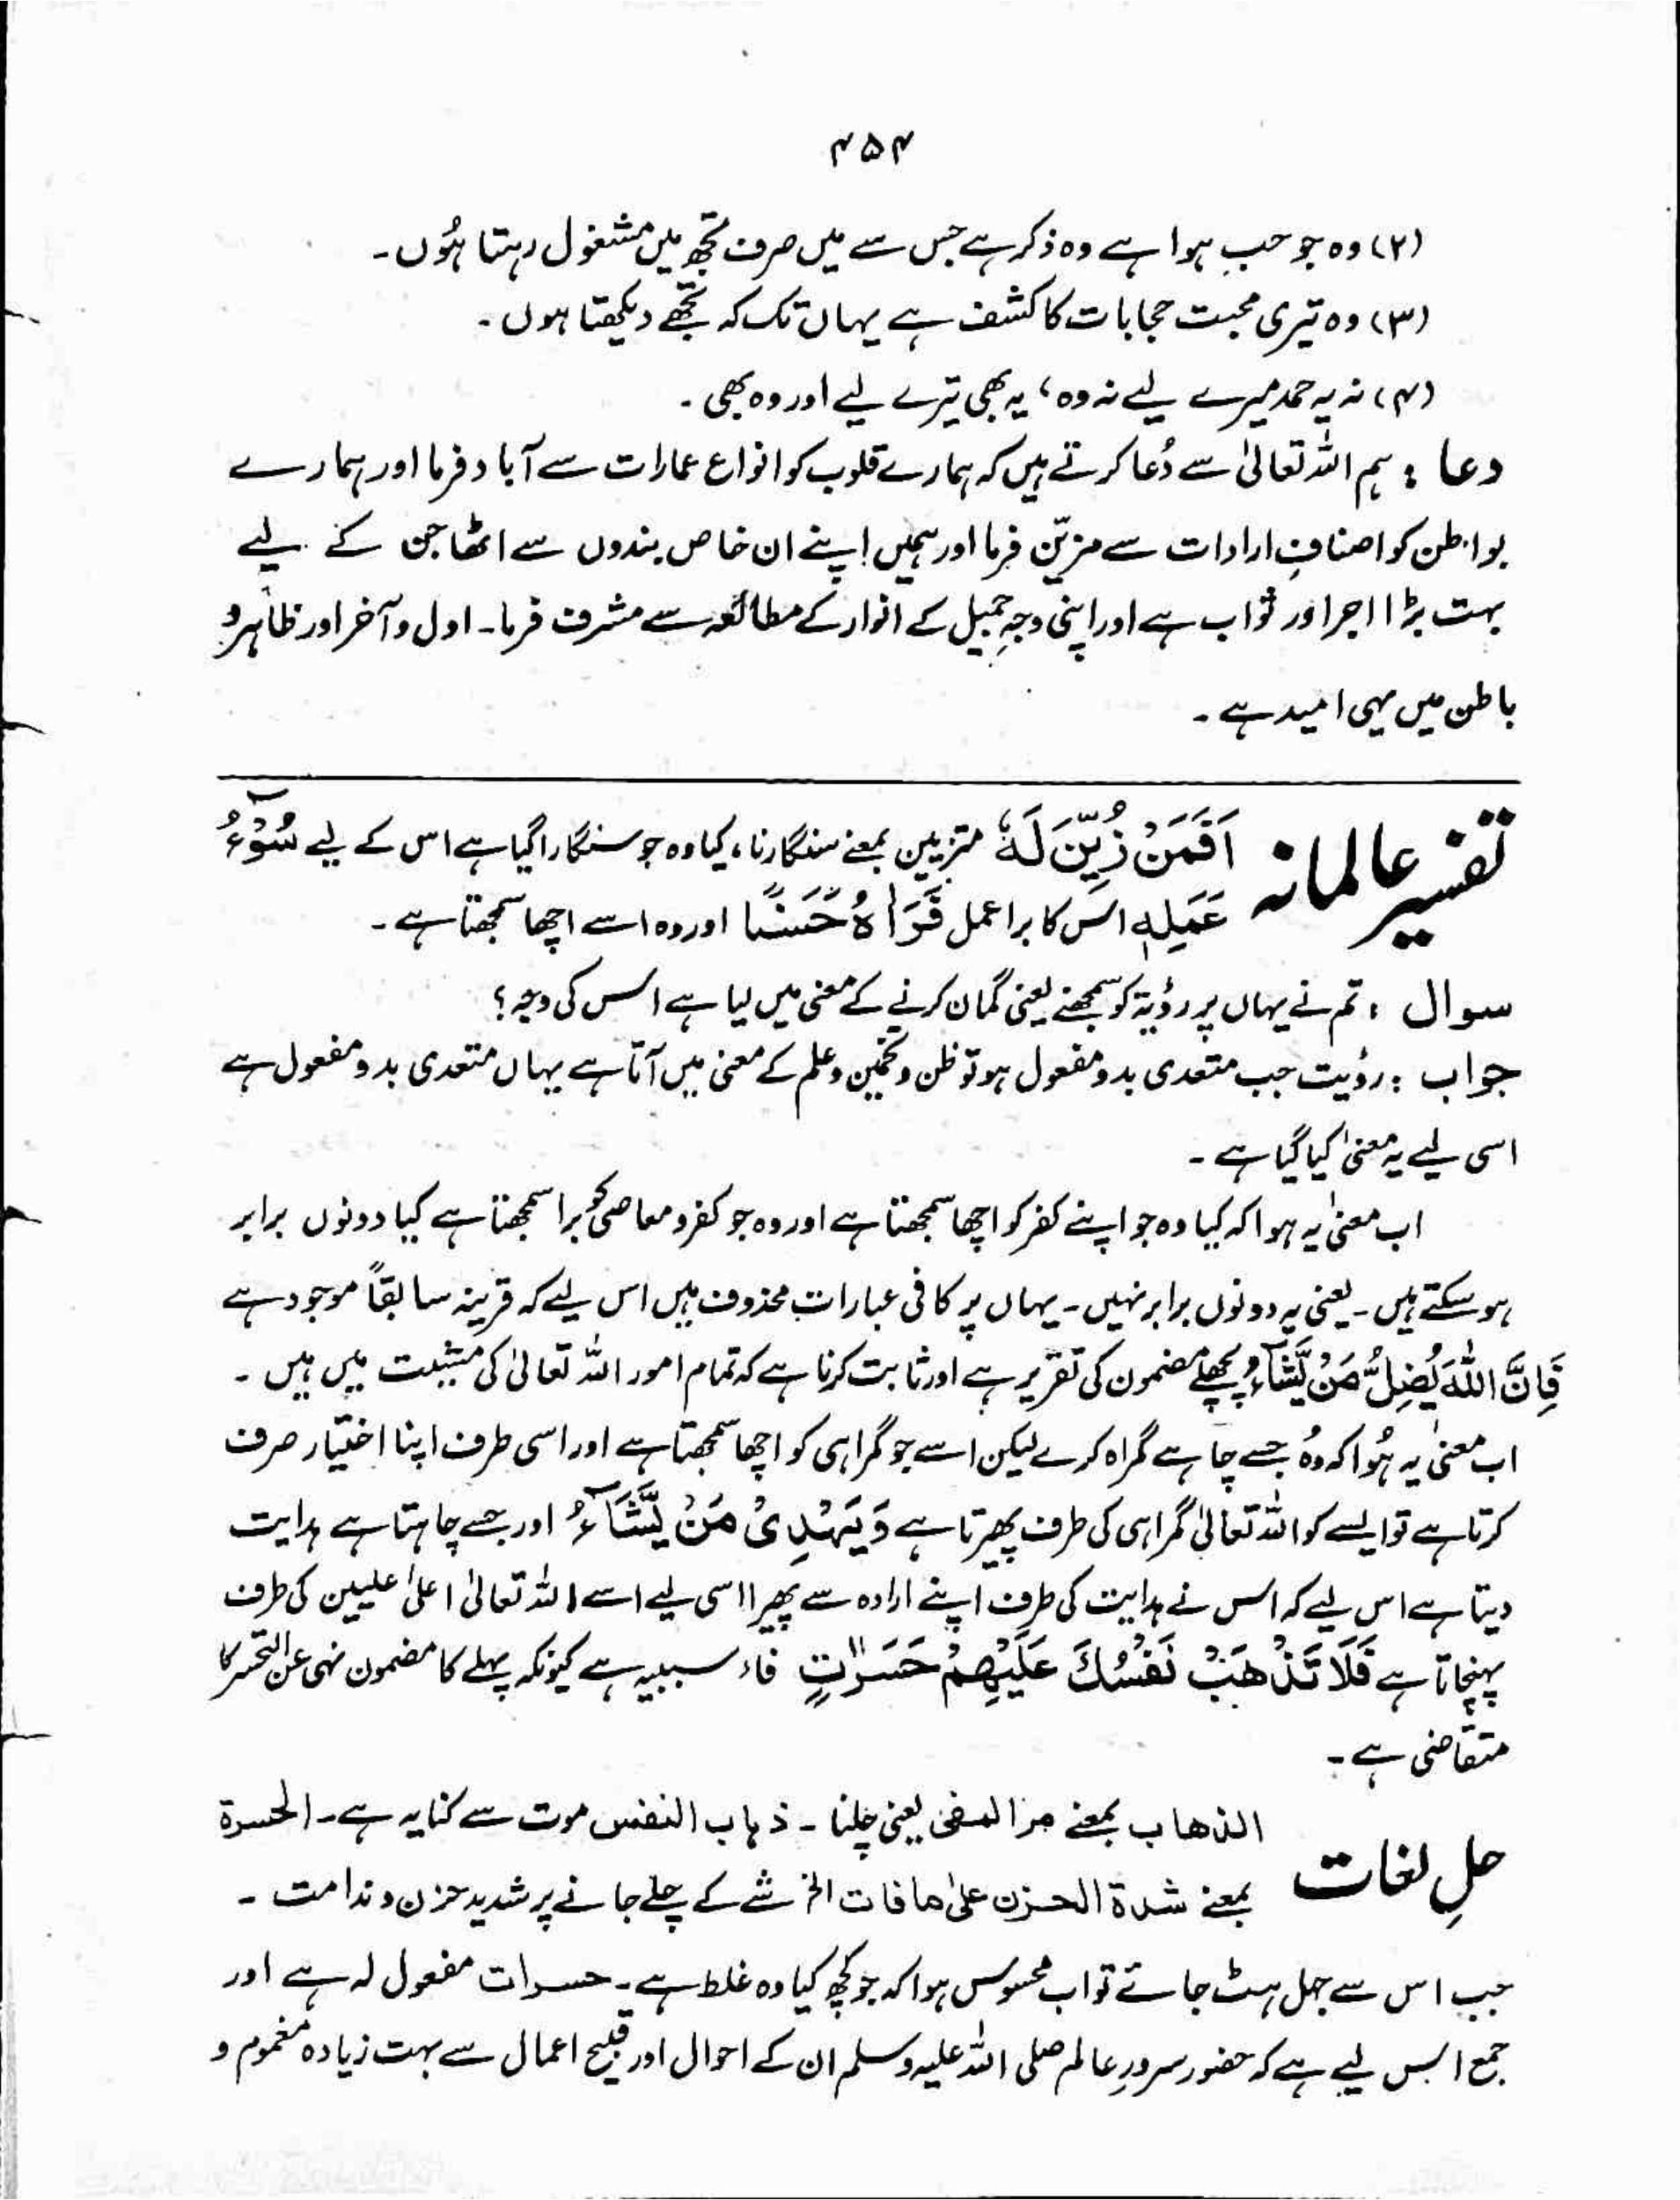 ۴۵۴
(۲) وہ جو حب ہوا ہے وہ ذکر ہے جس سے میں صرف تجھ میں مشغول رہتا ہُوں۔
(۳) وہ تیری محبت حجابات کا کشف ہے یہاں تک کہ تجھے دیکھتا ہوں۔
(۴) نہ یہ حمد میرے لیے نہ وہ، یہ بھی تیرے لیے اور وہ بھی۔
دعا : ہم اللہ تعالیٰ سے دُعا کرتے ہیں کہ ہمارے قلوب کو انواع عمارات سے آباد فرما اور ہمارے
بواطن کو اصنافِ ارادات سے مزیّن فرما اور ہمیں اپنے ان خاص بندوں سے اٹھا جن کے لیے
بہت بڑا اجر اور ثواب ہے اور اپنی وجہِ جمیل کے انوار کے مطالعہ سے مشرف فرما۔ اول و آخر اور ظاہر و
باطن میں یہی امید ہے۔
تفسیر عالمانہ اَفَمَنْ زُيِّنَ لَهٗ تزیین بمعنے سنگارنا، کیا وہ جو سنگارا گیا ہے اس کے لیے سُوْٓءُ
عَمَلِهٖ اس کا برا عمل فَرَاٰهُ حَسَنًا اور وہ اسے اچھا سمجھتا ہے۔
سوال : تم نے یہاں پر رؤیۃ کو سمجھنے یعنی گمان کرنے کے معنی میں لیا ہے اس کی وجہ؟
جواب : رؤیت جب متعدی بدو مفعول ہو تو ظن و تخمین و علم کے معنی میں آتا ہے یہاں متعدی بدو مفعول ہے
اسی لیے یہ معنیٰ کیا گیا ہے۔
اب معنیٰ یہ ہوا کہ کیا وہ جو اپنے کفر کو اچھا سمجھتا ہے اور وہ جو کفر و معاصی کو برا سمجھتا ہے کیا دونوں برابر
ہو سکتے ہیں۔ یعنی یہ دونوں برابر نہیں۔ یہاں پر کافی عبارات محذوف ہیں اس لیے کہ قرینہ سابقاً موجود ہے
فَاِنَّ اللّٰهَ يُضِلُّ مَنْ يَّشَآءُ پچھلے مضمون کی تقریر ہے اور ثابت کرنا ہے کہ تمام امور اللہ تعالیٰ کی مشیئت میں ہیں۔
اب معنیٰ یہ ہُوا کہ وہُ جسے چاہے گمراہ کرے لیکن اسے جو گمراہی کو اچھا سمجھتا ہے اور اسی طرف اپنا اختیار صرف
کرتا ہے تو ایسے کو اللہ تعالیٰ گمراہی کی طرف پھیرتا ہے وَيَهْدِىْ مَنْ يَّشَآءُ اور جسے چاہتا ہے ہدایت
دیتا ہے اس لیے کہ اس نے ہدایت کی طرف اپنے ارادہ سے پھیرا اسی لیے اسے اللہ تعالیٰ اعلیٰ علیین کی طرف
پہنچاتا ہے فَلَا تَذْهَبْ نَفْسُكَ عَلَيْهِمْ حَسَرٰتٍ فاء سببیہ ہے کیونکہ پہلے کا مضمون نہی عن التحسر کا
متقاضی ہے۔
حلِ لغات الذھاب بمعنے مر المضی یعنی چلنا۔ ذہاب النفس موت سے کنایہ ہے۔ الحسرۃ
بمعنے شدۃ الحزن علیٰ ما فات الخ شے کے چلے جانے پر شدید حزن و ندامت۔
جب اس سے جہل ہٹ جائے تو اب محسوس ہوا کہ جو کچھ کیا وہ غلط ہے۔ حسرات مفعول لہ ہے اور
جمع اس لیے ہے کہ حضور سرورِ عالم صلی اللہ علیہ وسلم ان کے احوال اور قبیح اعمال سے بہت زیادہ مغموم و